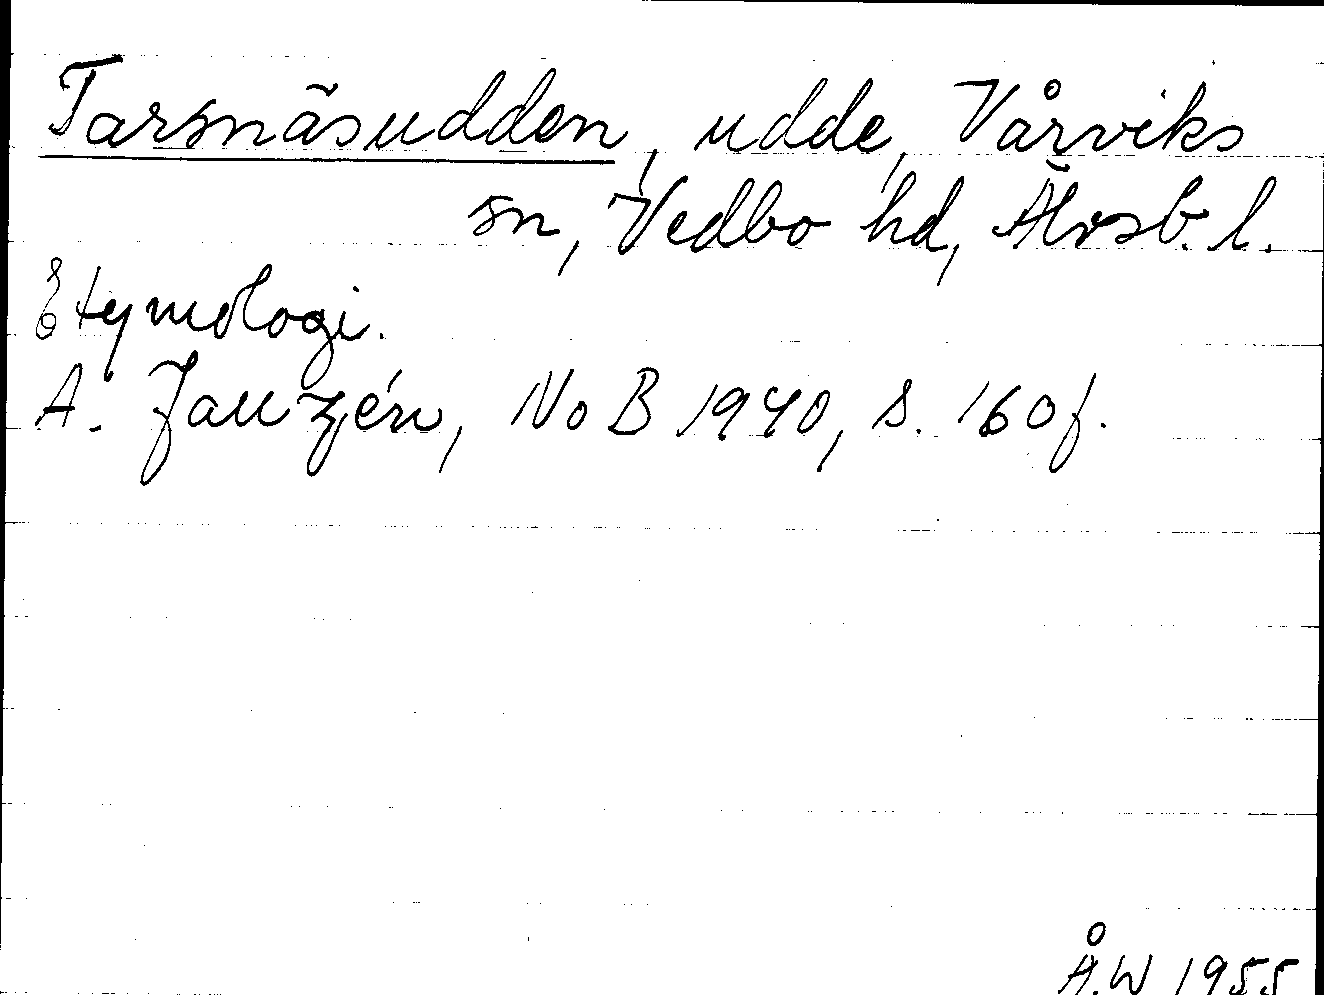 Tarsnäsudden, udde, Vårviks
sn, Vedbo hd, Älvsb. l.
Etymologi.
A. Janzén, NoB 1940, s. 160f.
Å.W 1955